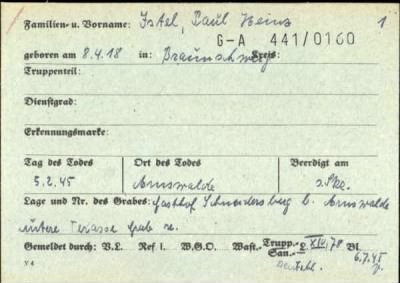 Familien- u. Vorname: Istel, Paul Heinz 1
G-A 441/0160
geboren am 8.4.18 in: Braunschweig Kreis:
Truppenteil:
Dienstgrad:
Erkennungsmarke:
Tag des Todes Ort des Todes Beerdigt am
5.2.45 Arnswalde
Lage und Nr. des Grabes: Gasthof Schneidersberg b. Arnswalde
untere Terasse Grab
Gemeldet durch: V.L. Ref I. W.G.O. Wast.- Trupp.- XIV, 78 Bl.
San.- 6.7.45
V 4